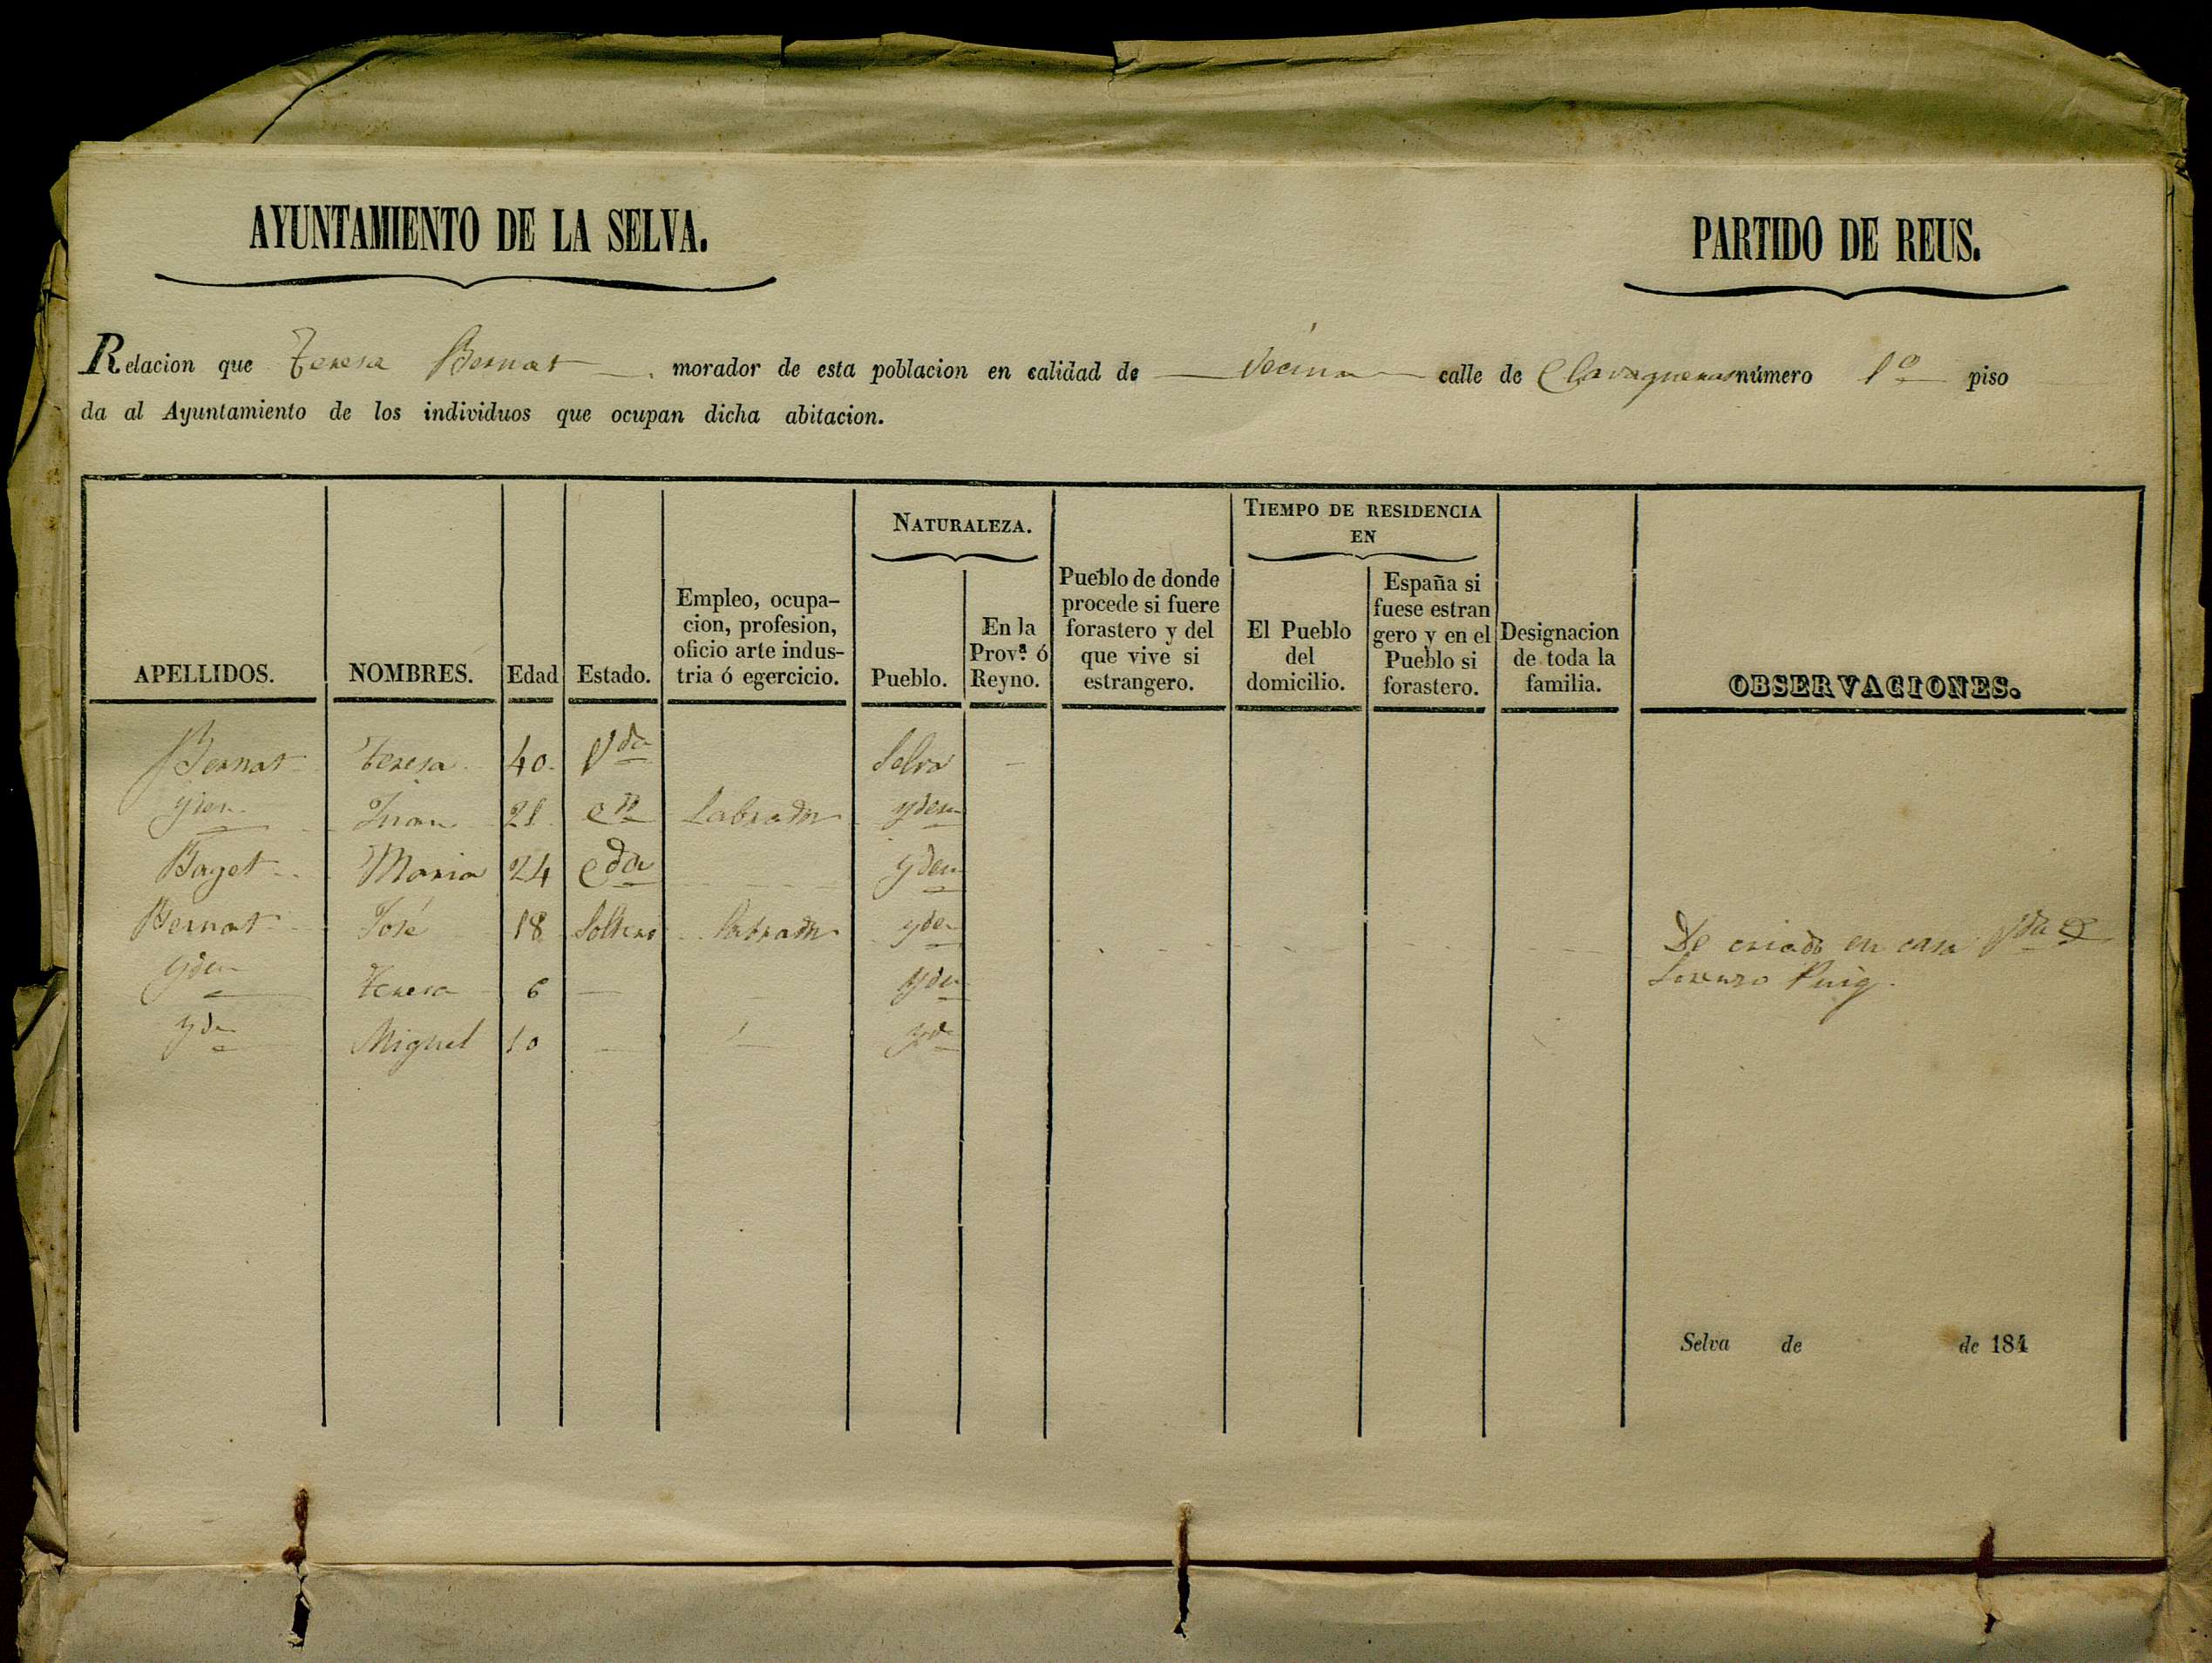 AYUNTAMIENTO DE LA SELVA.
PARTIDO DE REUS.
Relacion que Teresa Bernat morador de esta poblacion en calidad de Vecina calle de Clavaqueras número 1º piso
da al Ayuntamiento de los individuos que ocupan dicha abitacion.
NATURALEZA.
TIEMPO DE RESIDENCIA
EN
APELLIDOS.
NOMBRES.
Edad
Estado.
Empleo, ocupa-
cion, profesion,
oficio arte indus-
tria ó egercicio.
Pueblo.
En la
Prov.ª ó
Reyno.
Pueblo de donde
procede si fuere
forastero y del
que vive si
estrangero.
El Pueblo
del
domicilio.
España si
fuese estran
gero y en el
Pueblo si
forastero.
Designacion
de toda la
familia.
OBSERVACIONES.
Bernat Teresa 40 Vda Selva
yden Juan 21 cdo Labrador yden
Baget Maria 24 cda yden
Bernat José 18 Soltero Labrador yden De criado en casa Vda de
Lorenzo Puig.
yden Teresa 6 yden
yden Miguel 10 yden
Selva de de 184